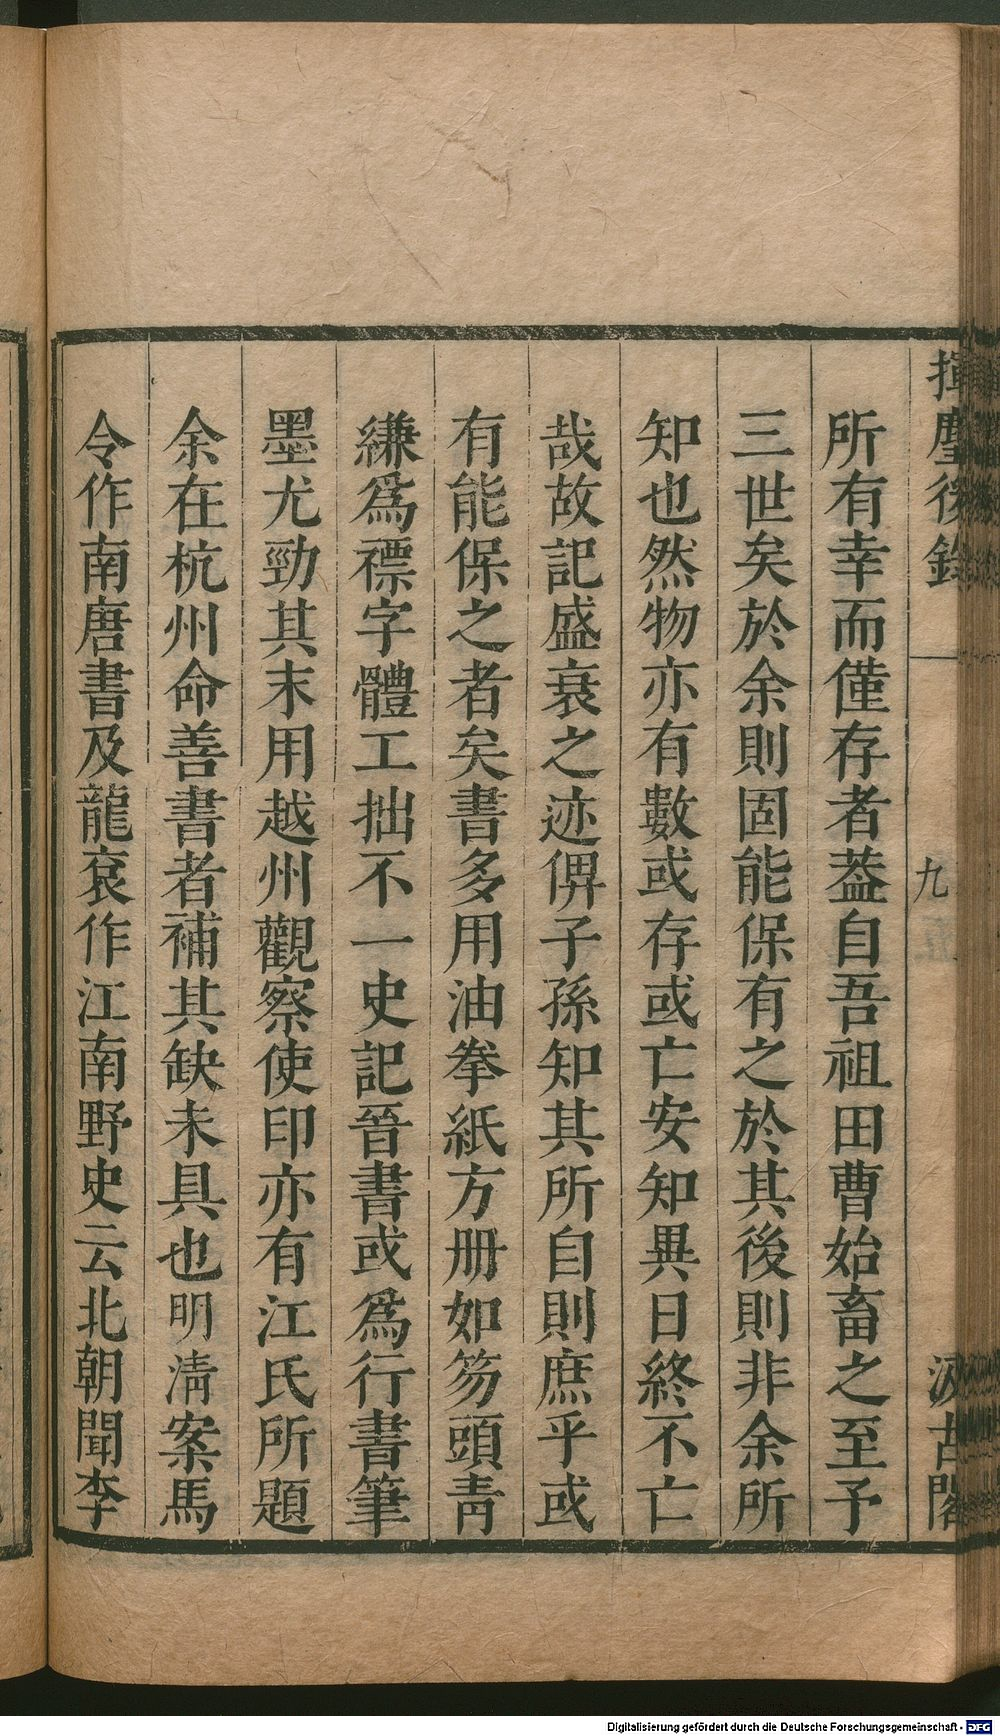 揮麈後錄
九
汲古閣
所有幸而僅存者葢自吾祖田曹始畜之至予
三世矣於余則固能保有之於其後則非余所
知也然物亦有數或存或亡安知異日終不亡
哉故記盛衰之迹俾子孫知其所自則庶乎或
有能保之者矣書多用油拳紙方册如笏頭靑
縑爲褾字體工拙不一史記晉書或爲行書筆
墨尤勁其末用越州觀察使印亦有江氏所題
余在杭州命善書者補其缺未具也明淸案馬
令作南唐書及龍袞作江南野史云北朝聞李
Digitalisierung gefördert durch die Deutsche Forschungsgemeinschaft - DFG